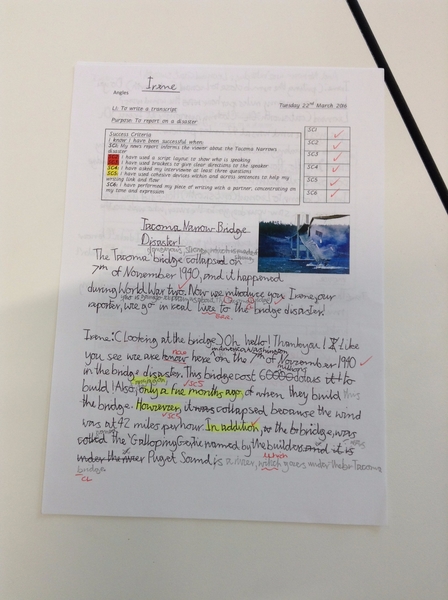 Irene
Angles
LI: To write a transcript
Tuesday 22nd March 2016
Purpose: To report on a disaster
Success Criteria
I know I have been successful when:
SC1: My news report informs the viewer about the Tacoma Narrows disaster
SC2: I have used a script layout to show who is speaking
SC3: I have used brackets to give clear directions to the speaker
SC4: I have asked my interviewee at least three questions
SC5: I have used cohesive devices within and across sentences to help my writing link and flow
SC6: I have performed my piece of writing with a partner, concentrating on my tone and expression
SC1
SC2
SC3
SC4
SC5
SC6
Tacoma Narrow Bridge
Disaster!
The Tacoma bridge collapsed on
7th of November 1940, and it happened
during World War two. Now we introduce you Irene, our
reporter, we go in real lives to the bridge disaster.
Irene: (Looking at the bridge) Oh hello! Thank you! I Like
you see we are here on the 7th of November 1940
in the bridge disaster. This bridge cost to
build! Also, only a five months ago, of when they build this
SC5
the bridge. However, it was collapsed because the wind
SC5
was at 42 miles per hour. In addition, the bridge, was
called the 'Galloping Gertie named by the builders and it is
under the river Puget Sound is a river, which goes under the Tacoma
bridge.
CL